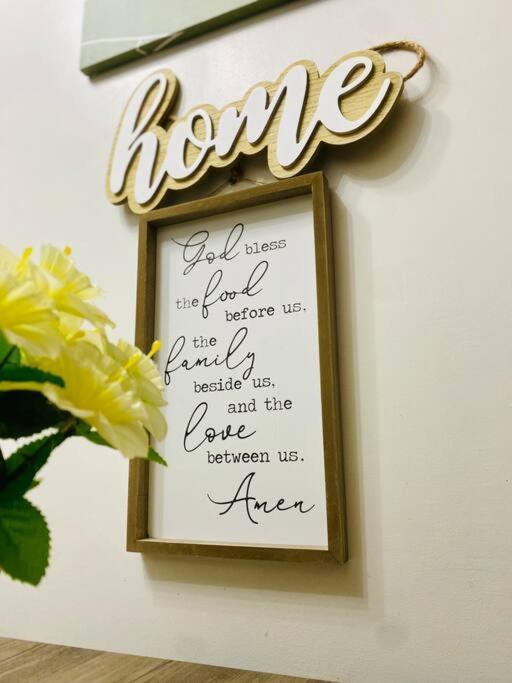 home
God bless
the food
before us,
the
family
beside us,
and the
love
between us.
Amen